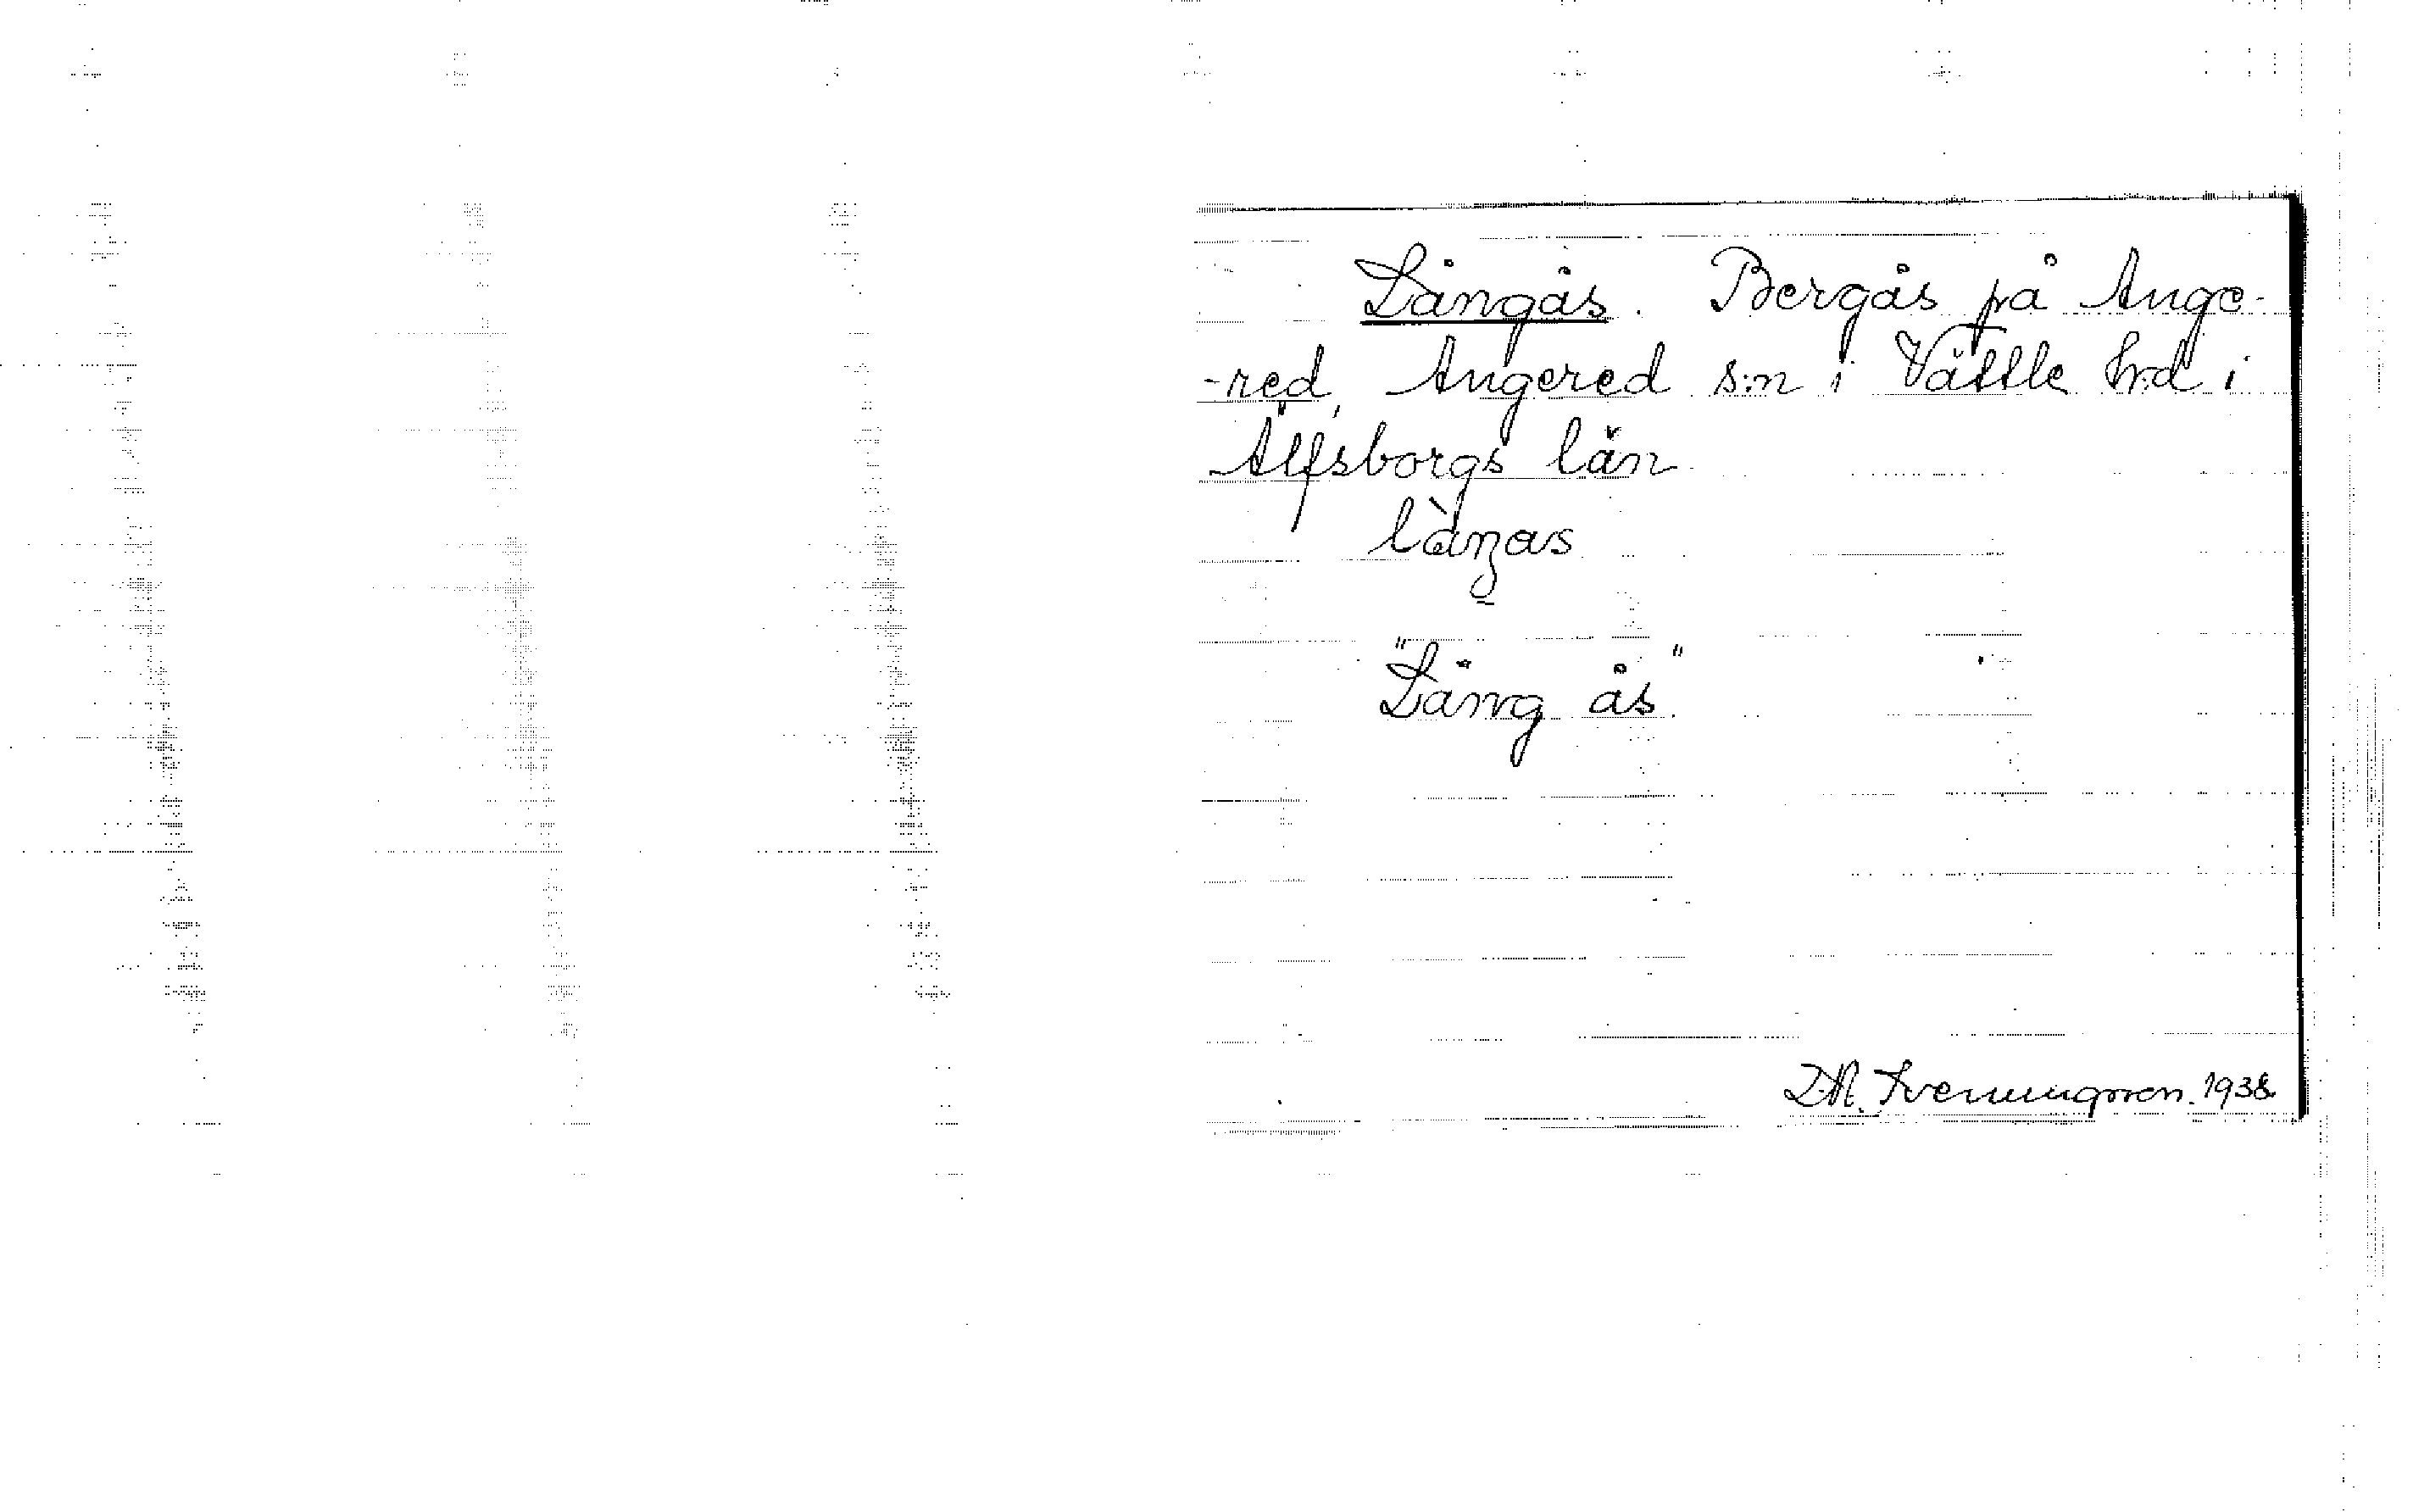 Långås. Bergås på Ange-
-red, Angered s:n i Vättle hrd i
Älfsborgs län
"Lång ås."
D.A. Svenningsson. 1938